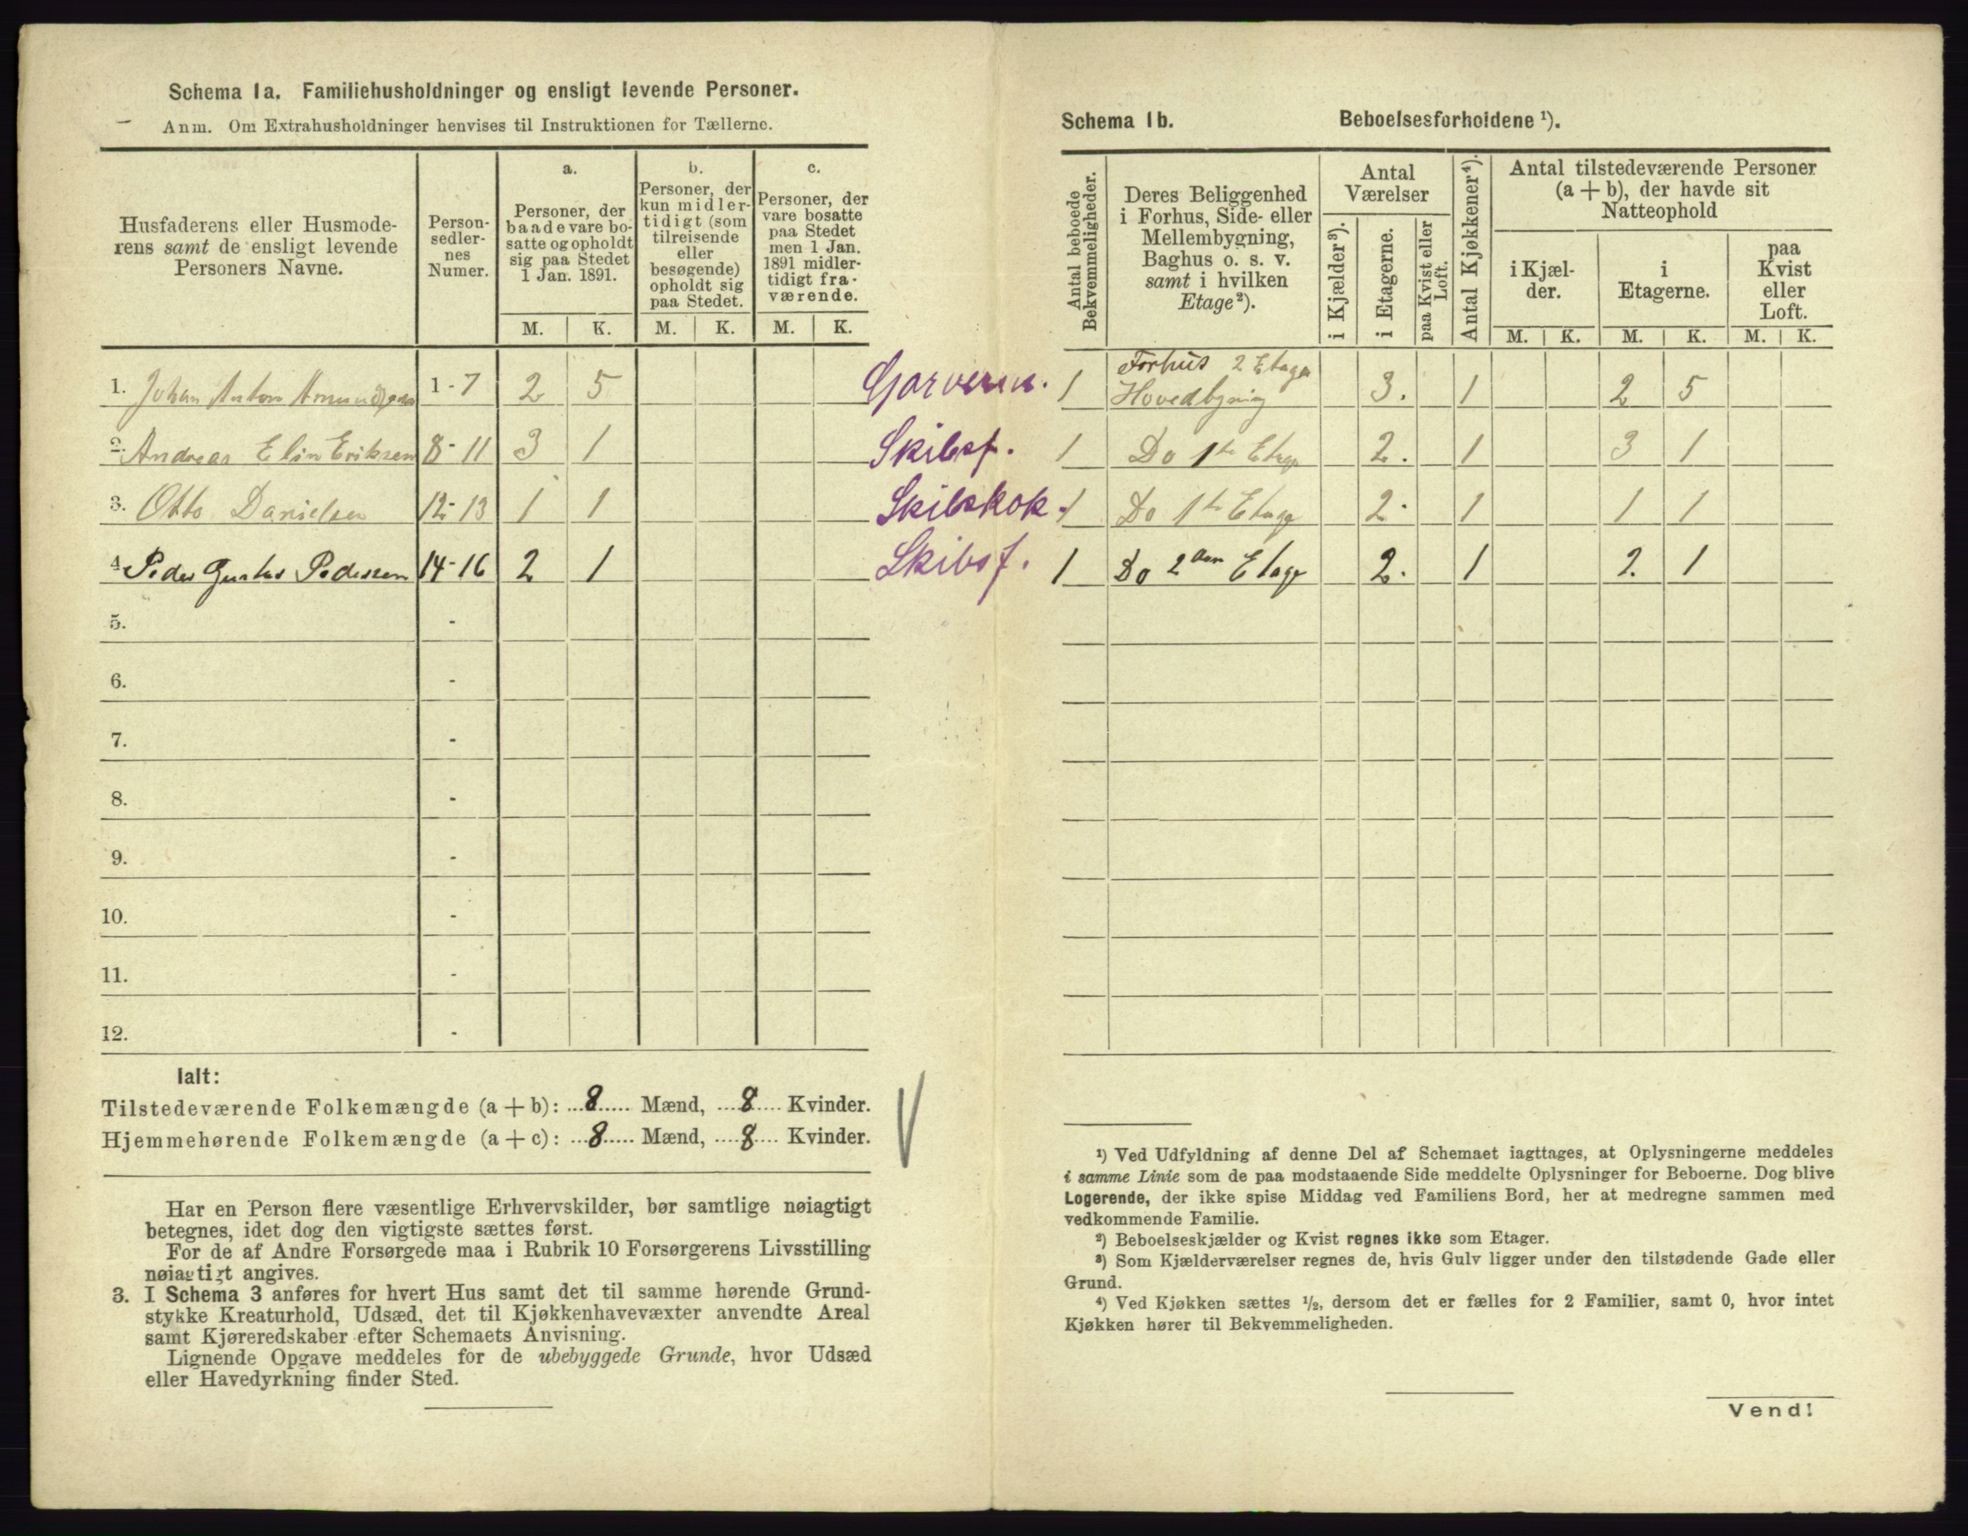 Schema 1a. Familiehusholdninger og ensligt levende Personer.
Anm. Om Extrahusholdninger henvises til Instruktionen for Tællerne.
Husfaderens eller Husmode-
rens samt de ensligt levende
Personers Navne.
Person-
sedler-
nes
Numer.
a.
Personer, der
baade vare bo-
satte og opholdt
sig paa Stedet
1 Jan. 1891.
b.
Personer, der
kun midler-
tidigt (som
tilreisende
eller
besøgende)
opholdt sig
paa Stedet.
c.
Personer, der
vare bosatte
paa Stedet
men 1 Jan.
1891 midler-
tidigt fra-
værende.
M. K. M. K. M. K.
1. Johan Anton Amundsen 1-7 2 5 Garversv.
2. Andreas Elin Eriksen 8-11 3 1 Skibsf.
3. Otto Danielsen 12-13 1 1 Skibskok.
4. Peder Gustav Pedersen 14-16 2 1 Skibsf.
5. -
6. -
7. -
8. -
9. -
10. -
11. -
12. -
Ialt:
Tilstedeværende Folkemængde (a+b): 8 Mænd, 8 Kvinder.
Hjemmehørende Folkemængde (a+c): 8 Mænd, 8 Kvinder.
Har en Person flere væsentlige Erhvervskilder, bør samtlige nøiagtigt
betegnes, idet dog den vigtigste sættes først.
For de af Andre Forsørgede maa i Rubrik 10 Forsørgerens Livsstilling
nøiagtigt angives.
3. I Schema 3 anføres for hvert Hus samt det til samme hørende Grund-
stykke Kreaturhold, Udsæd, det til Kjøkkenhavevæxter anvendte Areal
samt Kjøreredskaber efter Schemaets Anvisning.
Lignende Opgave meddeles for de ubebyggede Grunde, hvor Udsæd
eller Havedyrkning finder Sted.
Schema 1b. Beboelsesforholdene ¹).
Antal beboede
Bekvemmeligheder.
Deres Beliggenhed
i Forhus, Side- eller
Mellembygning,
Baghus o. s. v.
samt i hvilken
Etage²).
Antal
Værelser
i Kjælder³).
i Etagerne.
paa Kvist eller
Loft.
Antal Kjøkkener⁴).
Antal tilstedeværende Personer
(a+b), der havde sit
Natteophold
i Kjæl-
der.
i
Etagerne.
paa
Kvist
eller
Loft.
M. K. M. K. M. K.
Forhus 2 Etager
1 Hovedbygning 3. 1 2 5
1 Do 1te Etage 2. 1 3 1
1 Do 1te Etage 2. 1 1 1
1 Do 2den Etage 2. 1 2. 1
¹) Ved Udfyldning af denne Del af Schemaet iagttages, at Oplysningerne meddeles
i samme Linie som de paa modstaaende Side meddelte Oplysninger for Beboerne. Dog blive
Logerende, der ikke spise Middag ved Familiens Bord, her at medregne sammen med
vedkommende Familie.
²) Beboelseskjælder og Kvist regnes ikke som Etager.
³) Som Kjælderværelser regnes de, hvis Gulv ligger under den tilstødende Gade eller
Grund.
⁴) Ved Kjøkken sættes ½, dersom det er fælles for 2 Familier, samt 0, hvor intet
Kjøkken hører til Bekvemmeligheden.
Vend!